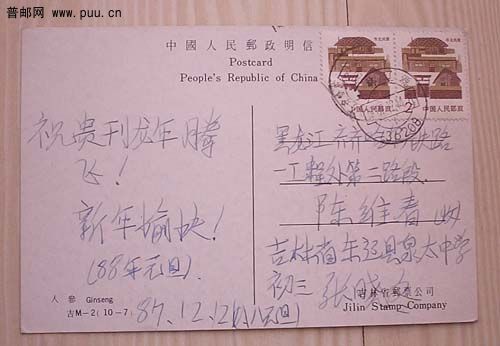 普邮网 www.puu.cn
中國人民郵政明信
Postcard
People's Republic of China
中国人民邮政
中国人民邮政
祝贵刊龙年腾
飞!
新年愉快!
(88年元旦)
黑龙江齐齐 铁路
第二路段
陈维春(收)
吉林省东辽县泉太中学
初三张
人參 Ginseng
吉M-2(10-7)
87.12.12
吉林省郵票公司
Jilin Stamp Company